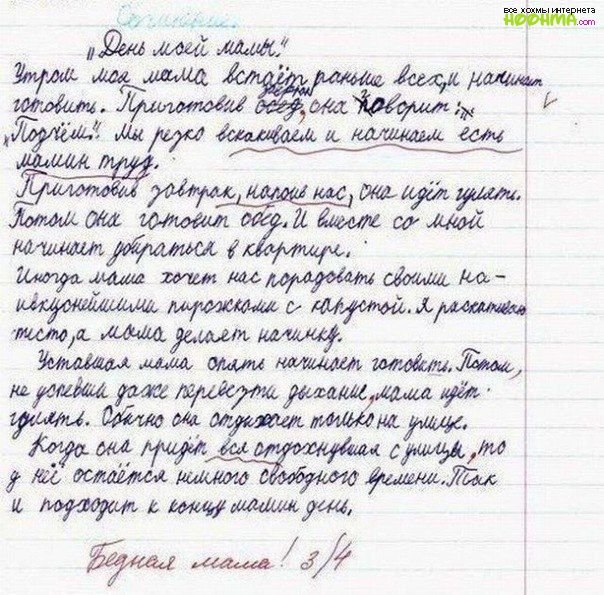 все хохмы интернета
HOHMA.com
Сочинение.
„День моей мамы."
Утром моя мама встаёт раньше всех, и начинает
готовить. Приготовив завтрак, она говорит:
„Подчём." Мы резко вскакиваем и начинаем есть
мамин труд.
Приготовив завтрак, напоив нас, она идёт гулять.
Потом она готовит обед. И вместе со мной
начинает убираться в квартире.
Иногда мама хочет нас порадовать своими на-
ивкуснейшими пирожками с капустой. Я раскатываю
тесто, а мама делает начинку.
Уставшая мама опять начинает готовить. Потом,
не успевши даже перевезти дыхание, мама идёт
гулять. Обычно она отдыхает только на улице.
Когда она придёт вся отдохнувшая с улицы, то
у неё остаётся немного свободного времени. Так
и подходит к концу мамин день.
Бедная мама! 3/4